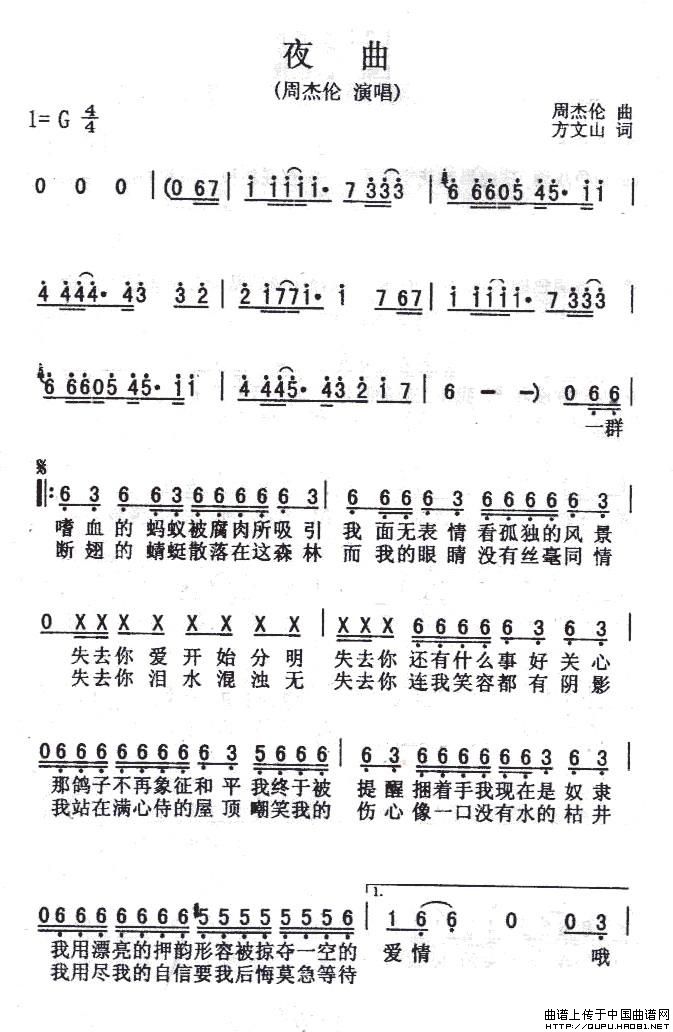 夜 曲
(周杰伦 演唱)
1= G 4/4
周杰伦 曲
方文山 词
0 0 0 | (0 67 | i iiii· 7 333 | 6 6605 45· ii |
4 444· 43 32 | 2 i77i· i 7 67 | i iiii· 7 333 |
6 6605 45· ii | 4 445· 43 2 i 7 | 6 - -) 0 66 |
一群
6 3 6 63 6666 63 | 6 6 6666 6666 63 |
嗜血的 蚂蚁被腐肉所吸引 我 面无表情看孤独的风景
断翅的 蜻蜓散落在这森林 而我的眼睛没有丝毫同情
0 XX X X X X X | XXX 6666 63 63 |
失去你 爱 开 始 分 明 失去你 还有什么事好关心
失去你 泪 水 混 浊 无 失去你 连我笑容都有阴影
0666 6666 63 5666 | 6 3 6666 6666 63 |
那鸽子不再象征和平我终于被 提醒捆着手我现在是奴隶
我站在满心侍的屋顶嘲笑我的 伤心像一口没有水的枯井
0666 6666 5555 5556 | 1. 1 66 0 03 |
我用漂亮的押韵形容被掠夺一空的 爱情 哦
我用尽我的自信要我后悔莫急等待
曲谱上传于中国曲谱网
HTTP://QUPU.HAO81.NET